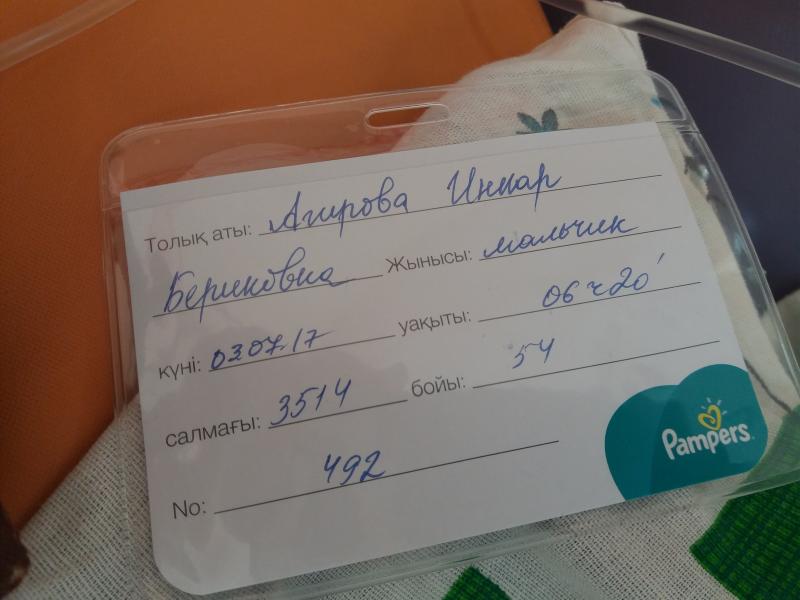 Толық аты: Агирова Инкар
Бериковна Жынысы: мальчик
күні: 03.07.17 уақыты: 06 ч 20'
салмағы: 3514 бойы: 54
No: 492
Pampers